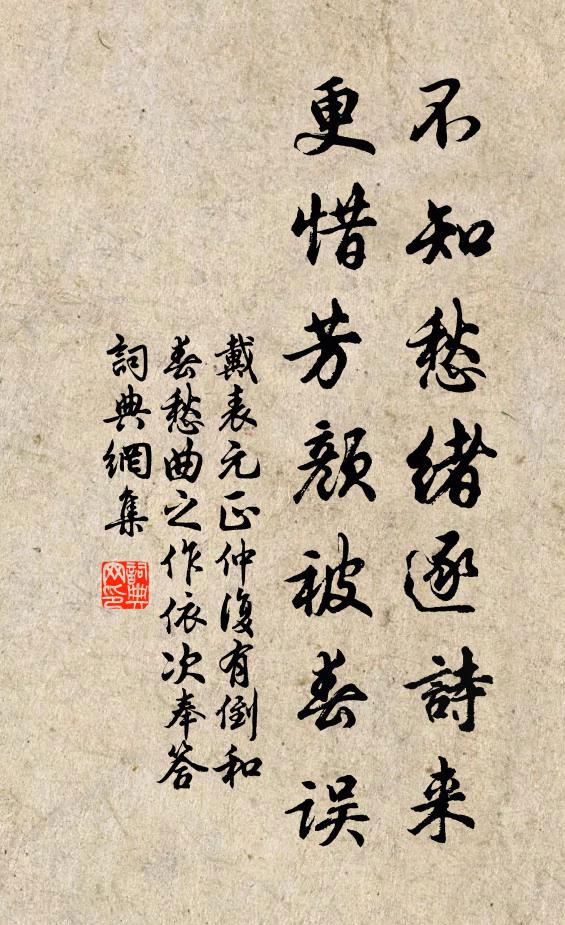 不知愁緒逐詩来
更惜芳顔被春误
戴表元正仲復有倒和
春愁曲之作依次奉答
詞典網集
詞典
网印